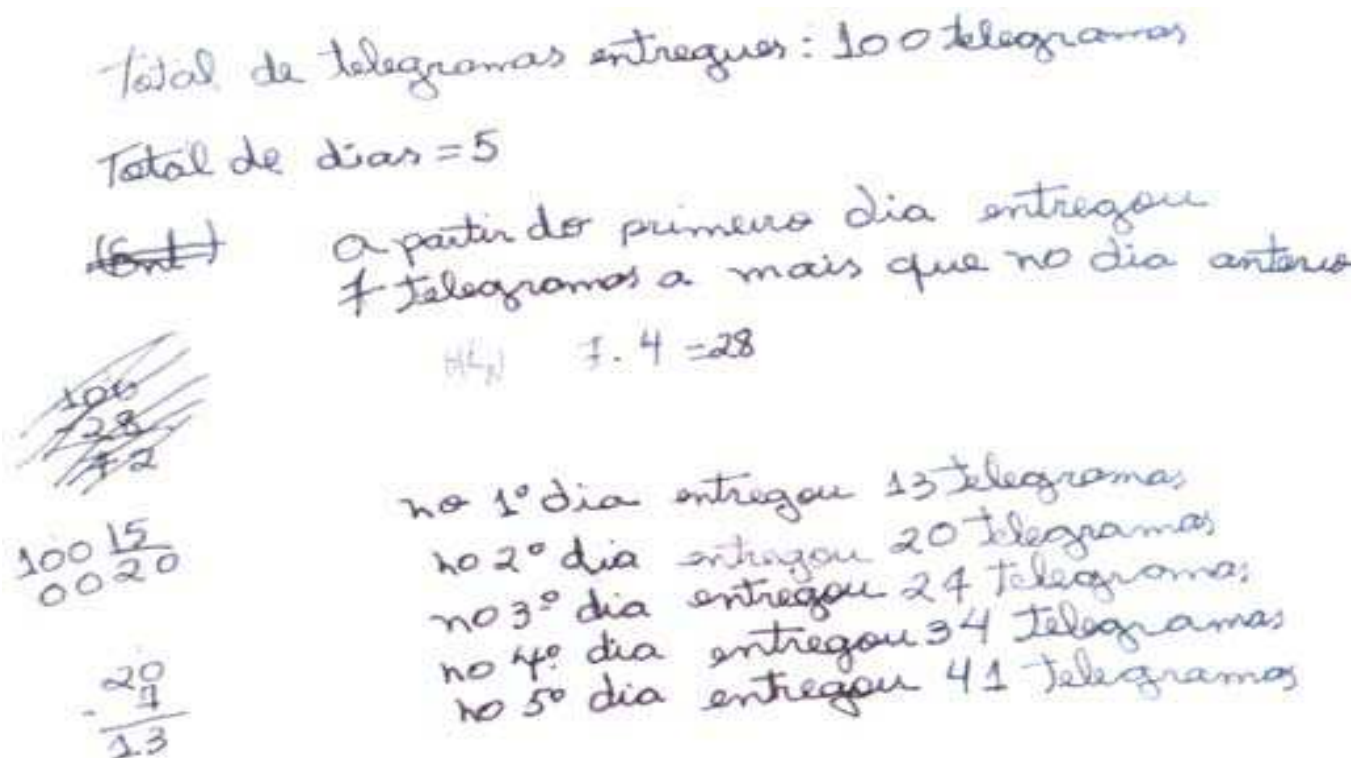 Total de telegramas entregues: 100 telegramas
Total de dias = 5
a partir do primeiro dia entregou
7 telegramas a mais que no dia anterio
7. 4 = 28
100
- 28
72
no 1º dia entregou 13 telegramas
100 5
0020
no 2º dia entregou 20 telegramas
no 3º dia entregou 27 telegramas
no 4º dia entregou 34 telegramas
no 5º dia entregou 41 telegramas
20
- 7
13